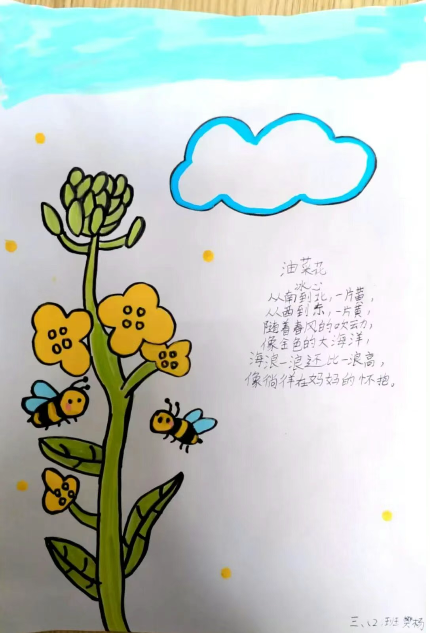 油菜花
冰心
从南到北,一片黄,
从西到东,一片黄,
随着春风的吹动,
像金色的大海洋,
海浪一浪还比一浪高,
像徜徉在妈妈的怀抱。
三、(2)班